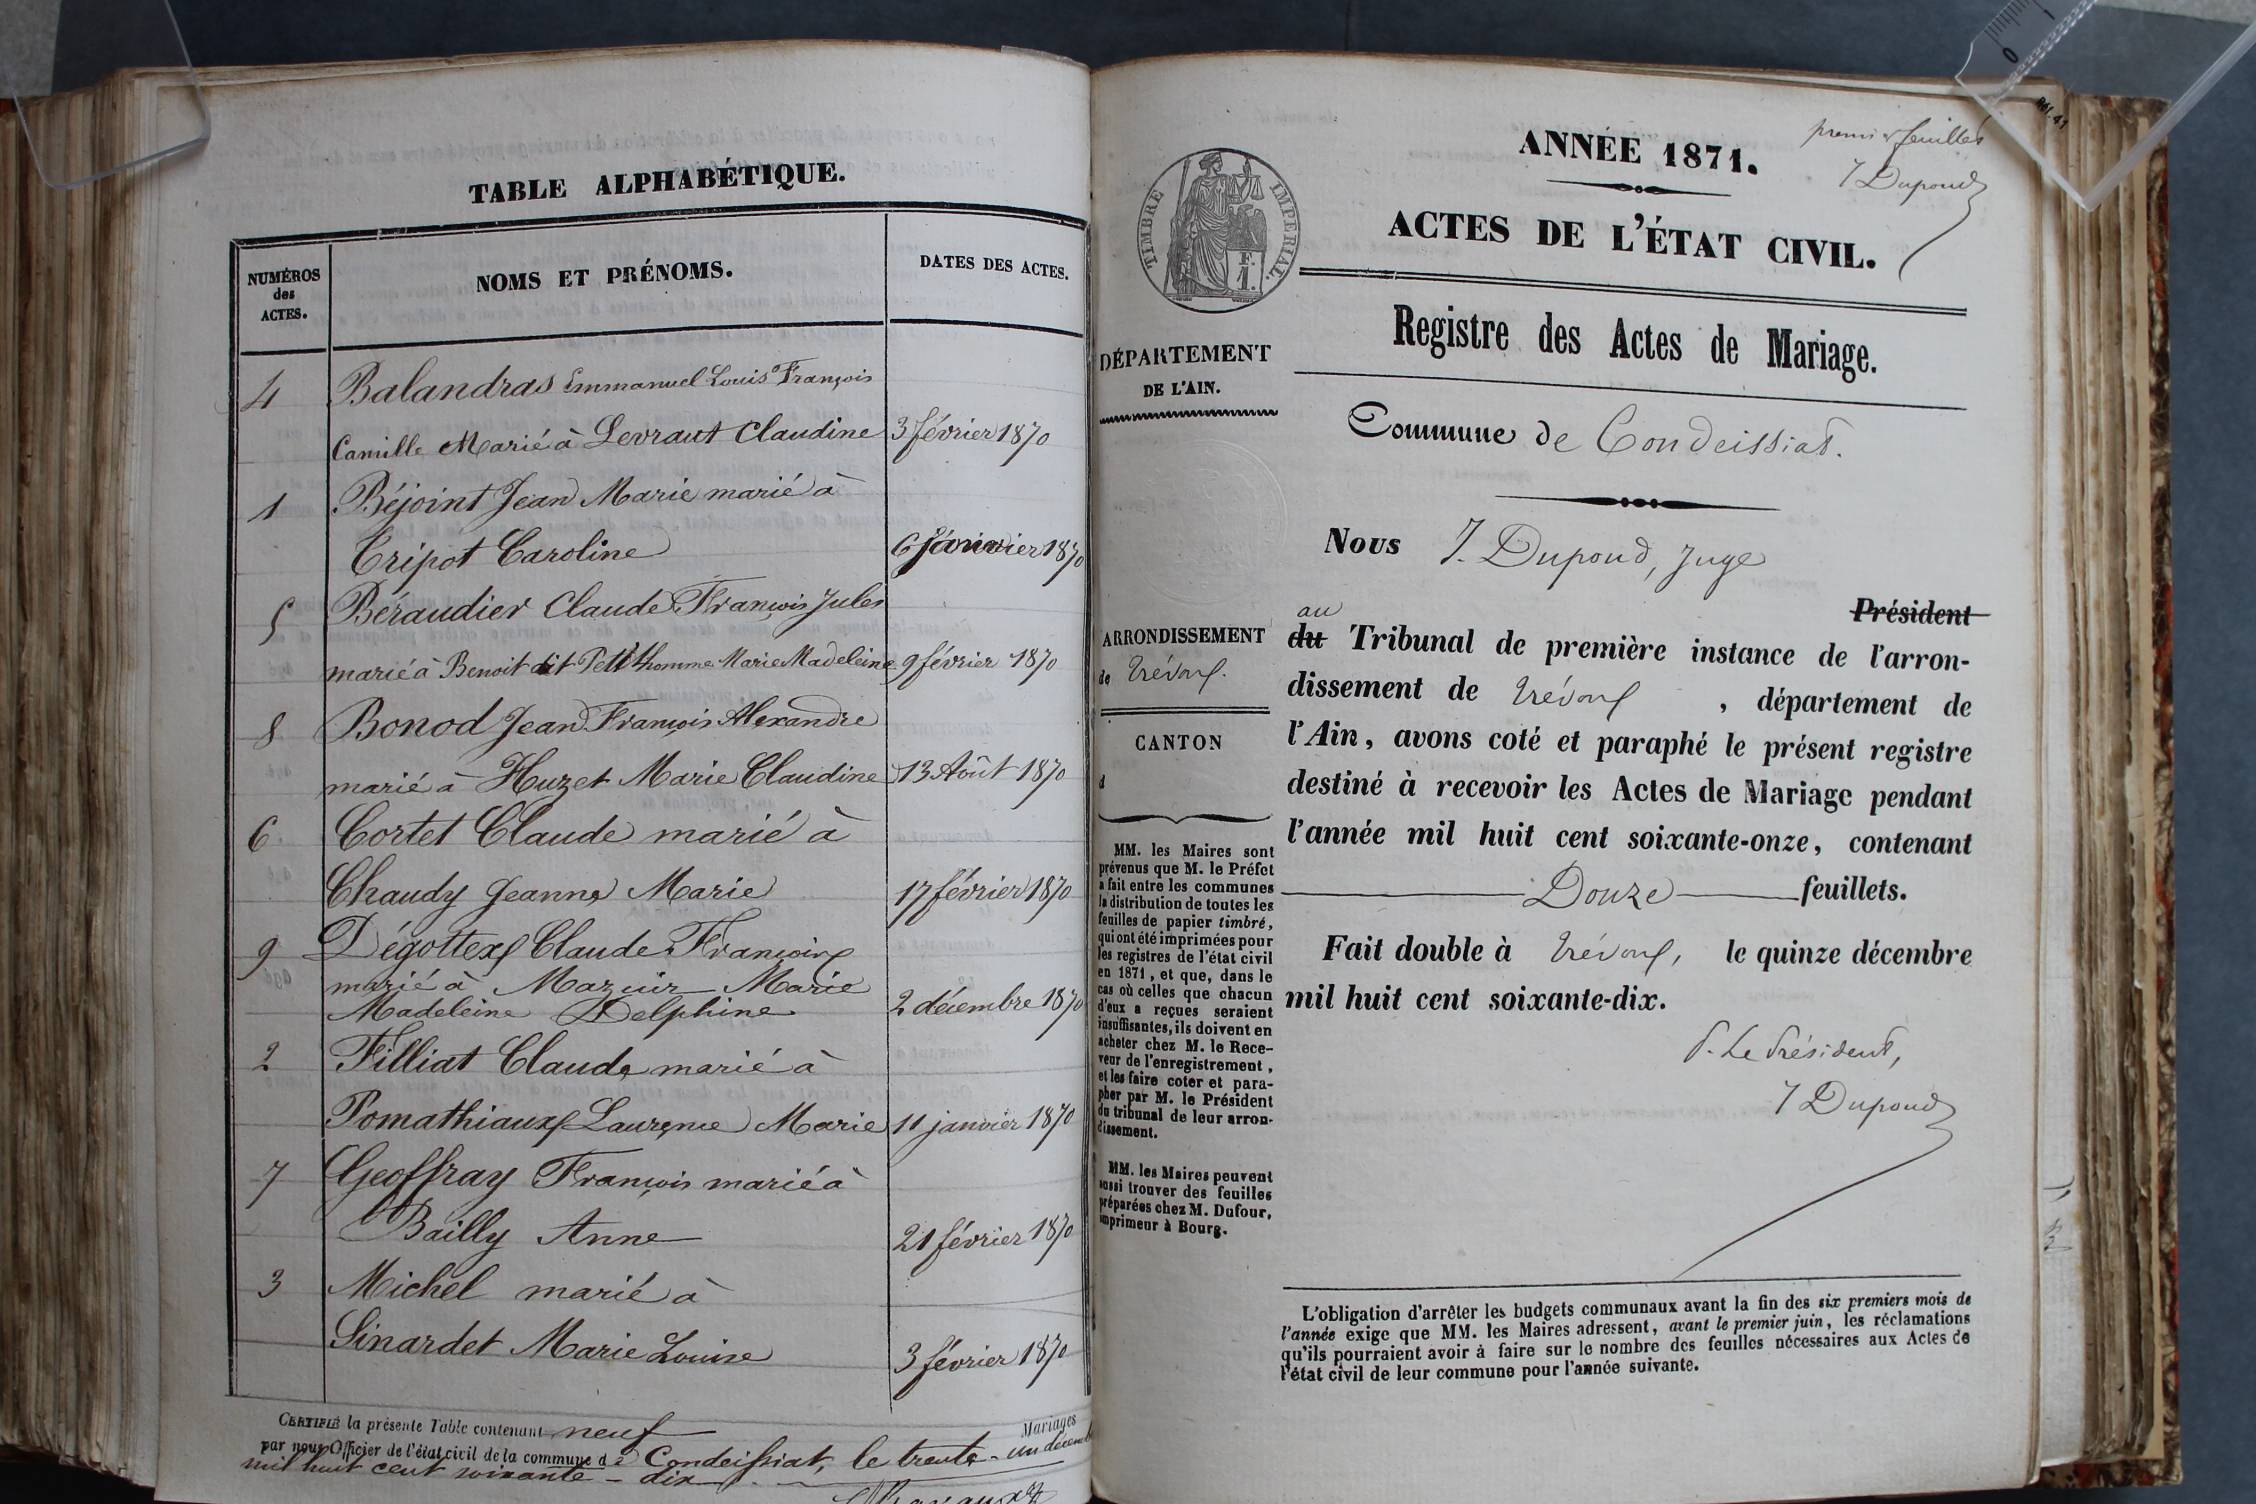 TABLE ALPHABÉTIQUE.
NUMÉROS des ACTES.
NOMS ET PRÉNOMS.
DATES DES ACTES.
4 Balandras Emmanuel Louis François
Camille Marié à Levraut Claudine 3 février 1870
1 Béjoint Jean Marie marié à
Tripot Caroline 6 janvier 1870
5 Béraudier Claude François Jules
marié à Benoit dit Petithomme Marie Madeleine 9 février 1870
8 Bonod Jean François Alexandre
marié à Huzet Marie Claudine 13 Août 1870
6 Cortet Claude marié à
Chaudy Jeanne Marie 17 février 1870
9 Dégottex Claude François
marié à Mazuir Marie
Madeleine Delphine 2 décembre 1870
2 Filliat Claude marié à
Pomathiaux Laurence Marie 11 janvier 1870
7 Geoffray François marié à
Bailly Anne 21 février 1870
3 Michel marié à
Sinardet Marie Louise 3 février 1870
CERTIFIÉ la présente Table contenant neuf Mariages
par nous Officier de l'état civil de la commune de Condeissiat, le trente-un décembre
mil huit cent soixante-dix
premier feuillet
J Dupond
Réf. 41
0 1
ANNÉE 1871.
ACTES DE L'ÉTAT CIVIL.
TIMBRE IMPERIAL.
F.
1.
Registre des Actes de Mariage.
DÉPARTEMENT
DE L'AIN.
Commune de Condeissiat.
Nous J. Dupond, Juge
Président
au
du Tribunal de première instance de l'arron-
dissement de Trévoux, département de
l'Ain, avons coté et paraphé le présent registre
destiné à recevoir les Actes de Mariage pendant
l'année mil huit cent soixante-onze, contenant
Douze feuillets.
Fait double à Trévoux, le quinze décembre
mil huit cent soixante-dix.
P. Le Président,
J Dupond
ARRONDISSEMENT
de Trévoux.
CANTON
d
MM. les Maires sont
prévenus que M. le Préfet
a fait entre les communes
la distribution de toutes les
feuilles de papier timbré,
qui ont été imprimées pour
les registres de l'état civil
en 1871, et que, dans le
cas où celles que chacun
d'eux a reçues seraient
insuffisantes, ils doivent en
acheter chez M. le Rece-
veur de l'enregistrement,
et les faire coter et para-
pher par M. le Président
du tribunal de leur arron-
dissement.
MM. les Maires peuvent
aussi trouver des feuilles
préparées chez M. Dufour,
imprimeur à Bourg.
L'obligation d'arrêter les budgets communaux avant la fin des six premiers mois de
l'année exige que MM. les Maires adressent, avant le premier juin, les réclamations
qu'ils pourraient avoir à faire sur le nombre des feuilles nécessaires aux Actes de
l'état civil de leur commune pour l'année suivante.